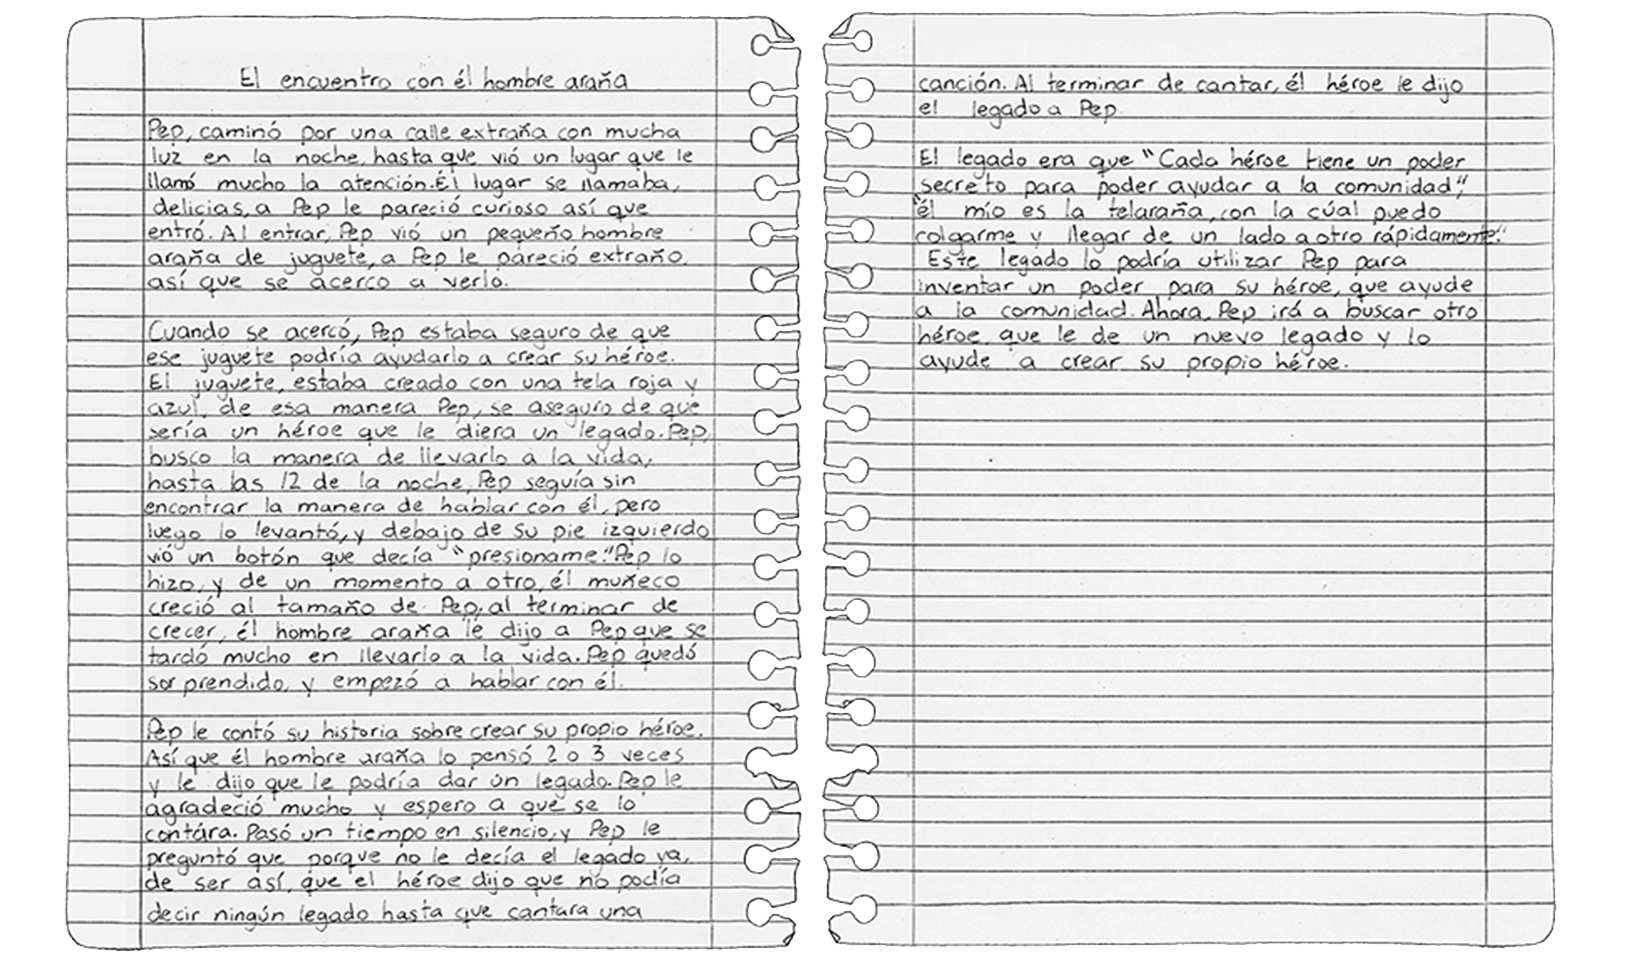 El encuentro con él hombre araña
Pep, caminó por una calle extraña con mucha
luz en la noche, hasta que vió un lugar que le
llamó mucho la atención. Él lugar se llamaba,
delicias, a Pep le pareció curioso así que
entró. Al entrar, Pep vió un pequeño hombre
araña de juguete, a Pep le pareció extraño,
así que se acerco a verlo.
Cuando se acercó, Pep estaba seguro de que
ese juguete podría ayudarlo a crear su héroe.
El juguete, estaba creado con una tela roja y
azul, de esa manera Pep, se aseguro de que
sería un héroe que le diera un legado. Pep,
busco la manera de llevarlo a la vida,
hasta las 12 de la noche, Pep seguía sin
encontrar la manera de hablar con él, pero
luego lo levantó, y debajo de su pie izquierdo
vió un botón que decía "presioname." Pep lo
hizo, y de un momento a otro, él muñeco
creció al tamaño de Pep, al terminar de
crecer, él hombre araña le dijo a Pep que se
tardó mucho en llevarlo a la vida. Pep quedó
sorprendido, y empezó a hablar con él.
Pep le contó su historia sobre crear su propio héroe.
Así que él hombre araña lo pensó 2 o 3 veces
y le dijo que le podría dar ún legado. Pep le
agradeció mucho y espero a que se lo
contára. Pasó un tiempo en silencio, y Pep le
preguntó que porque no le decía el legado ya,
de ser así, que el héroe dijo que no podía
decir ningún legado hasta que cantara una
canción. Al terminar de cantar, él héroe le dijo
el legado a Pep.
El legado era que "Cada héroe tiene un poder
secreto para poder ayudar a la comunidad",
"él mío es la telaraña, con la cúal puedo
colgarme y llegar de un lado a otro rápidamente."
Este legado lo podría utilizar Pep para
inventar un poder para su héroe, que ayude
a la comunidad. Ahora, Pep irá a buscar otro
héroe, que le de un nuevo legado y lo
ayude a crear su propio héroe.